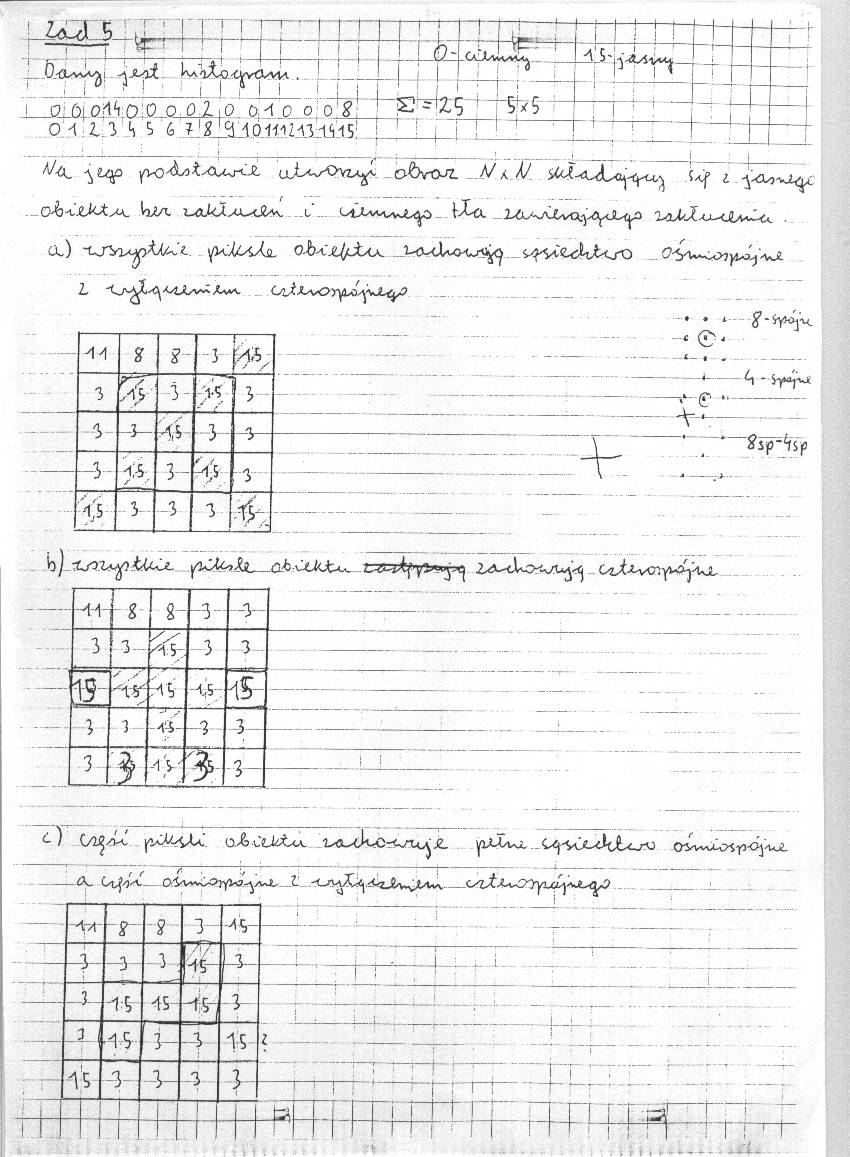 Zad 5
0-ciemny 15-jasny
Dany jest histogram.
0 0 0 14 0 0 0 0 2 0 0 1 0 0 0 8 Σ = 25 5x5
0 1 2 3 4 5 6 7 8 9 10 11 12 13 14 15
Na jego podstawie utworzyć obraz N x N składający się z jasnego
obiektu bez zakłuceń i ciemnego tła zawierającego zakłucenia.
a) wszystkie piksle obiektu zachowują sąsiedztwo ośmiospójne
z wyłączeniem czterospójnego
8-spójne
4-spójne
8sp-4sp
11 8 8 3 15
3 15 3 15 3
3 3 15 3 3
3 15 3 15 3
15 3 3 3 15
b) wszystkie piksle obiektu zachowują czterospójne
11 8 8 3 3
3 3 15 3 3
15 15 15 15 15
3 3 15 3 3
3 3 15 3 3
c) część piksli obiektu zachowuje pełne sąsiedztwo ośmiospójne
a część ośmiospójne z wyłączeniem czterospójnego
11 8 8 3 15
3 3 3 15 3
3 15 15 15 3
3 15 3 3 15 ?
15 3 3 3 3